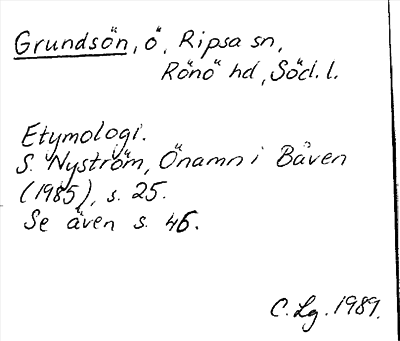 Grundsön, ö, Ripsa sn,
Rönö hd, Söd. l.
Etymologi.
S. Nyström, Önamn i Båven
(1985), s. 25.
Se även s. 46.
C. Lg. 1989.